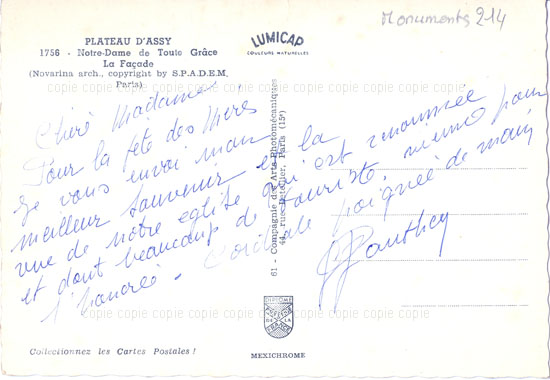 Monuments 214
PLATEAU D'ASSY
1756 - Notre-Dame de Toute Grâce
La Façade
(Novarina arch., copyright by S.P.A.D.E.M.
Paris)
LUMICAP
COULEURS NATURELLES
copie copie copie copie copie copie copie copie copie copie copie copie copie
Chère Madame
Pour la fête des Mères
Je vous envoi mon
meilleur souvenir et la
vue de notre église qui est renommée
et dont beaucoup de touriste, viennes pour
l'
Cordiale poignée de main
copie copie copie copie copie copie copie copie copie copie copie copie copie
61 - Compagnie des Arts Photomécaniques
44, rue Letellier, Paris (15e)
DIPLOME
PRESTIGE
DE LA
FRANCE
copie copie copie copie copie copie copie copie copie copie copie copie copie
Collectionnez les Cartes Postales !
MEXICHROME